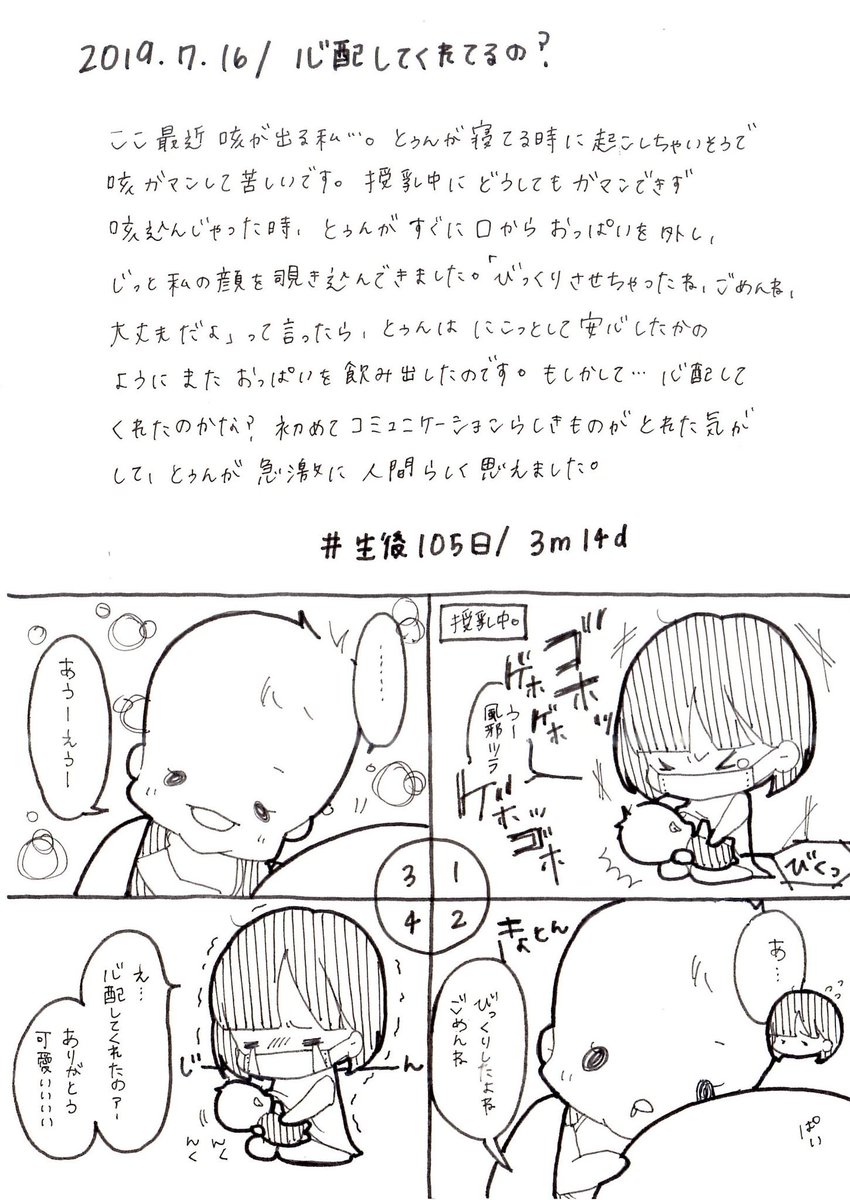 2019.7.16/ 心配してくれてるの?
ここ最近 咳が出る私…。とぅんが寝てる時に起こしちゃいそうで
咳ガマンして苦しいです。授乳中にどうしてもガマンできず
咳込んじゃった時、とぅんがすぐに口からおっぱいを外し、
じっと私の顔を覗き込んできました。「びっくりさせちゃったね、ごめんね、
大丈夫だよ」って言ったら、とぅんはにこっとして安心したかの
ようにまたおっぱいを飲み出したのです。もしかして…心配して
くれたのかな?初めてコミュニケーションらしきものがとれた気が
して、とぅんが急激に人間らしく思えました。
#生後105日/ 3m14d
授乳中。
ゴホッ
ゲホ
ゲホ
うー
風邪ツラ
ゲホッ
ゴホ
びくっ
1
あ…
きょとん
びっくりしたよね
ごめんね
ぱい
2
………
あぅーえぅー
3
え…
心配してくれたのァー
ありがとう
可愛いいいい
じーん
んく
んく
4